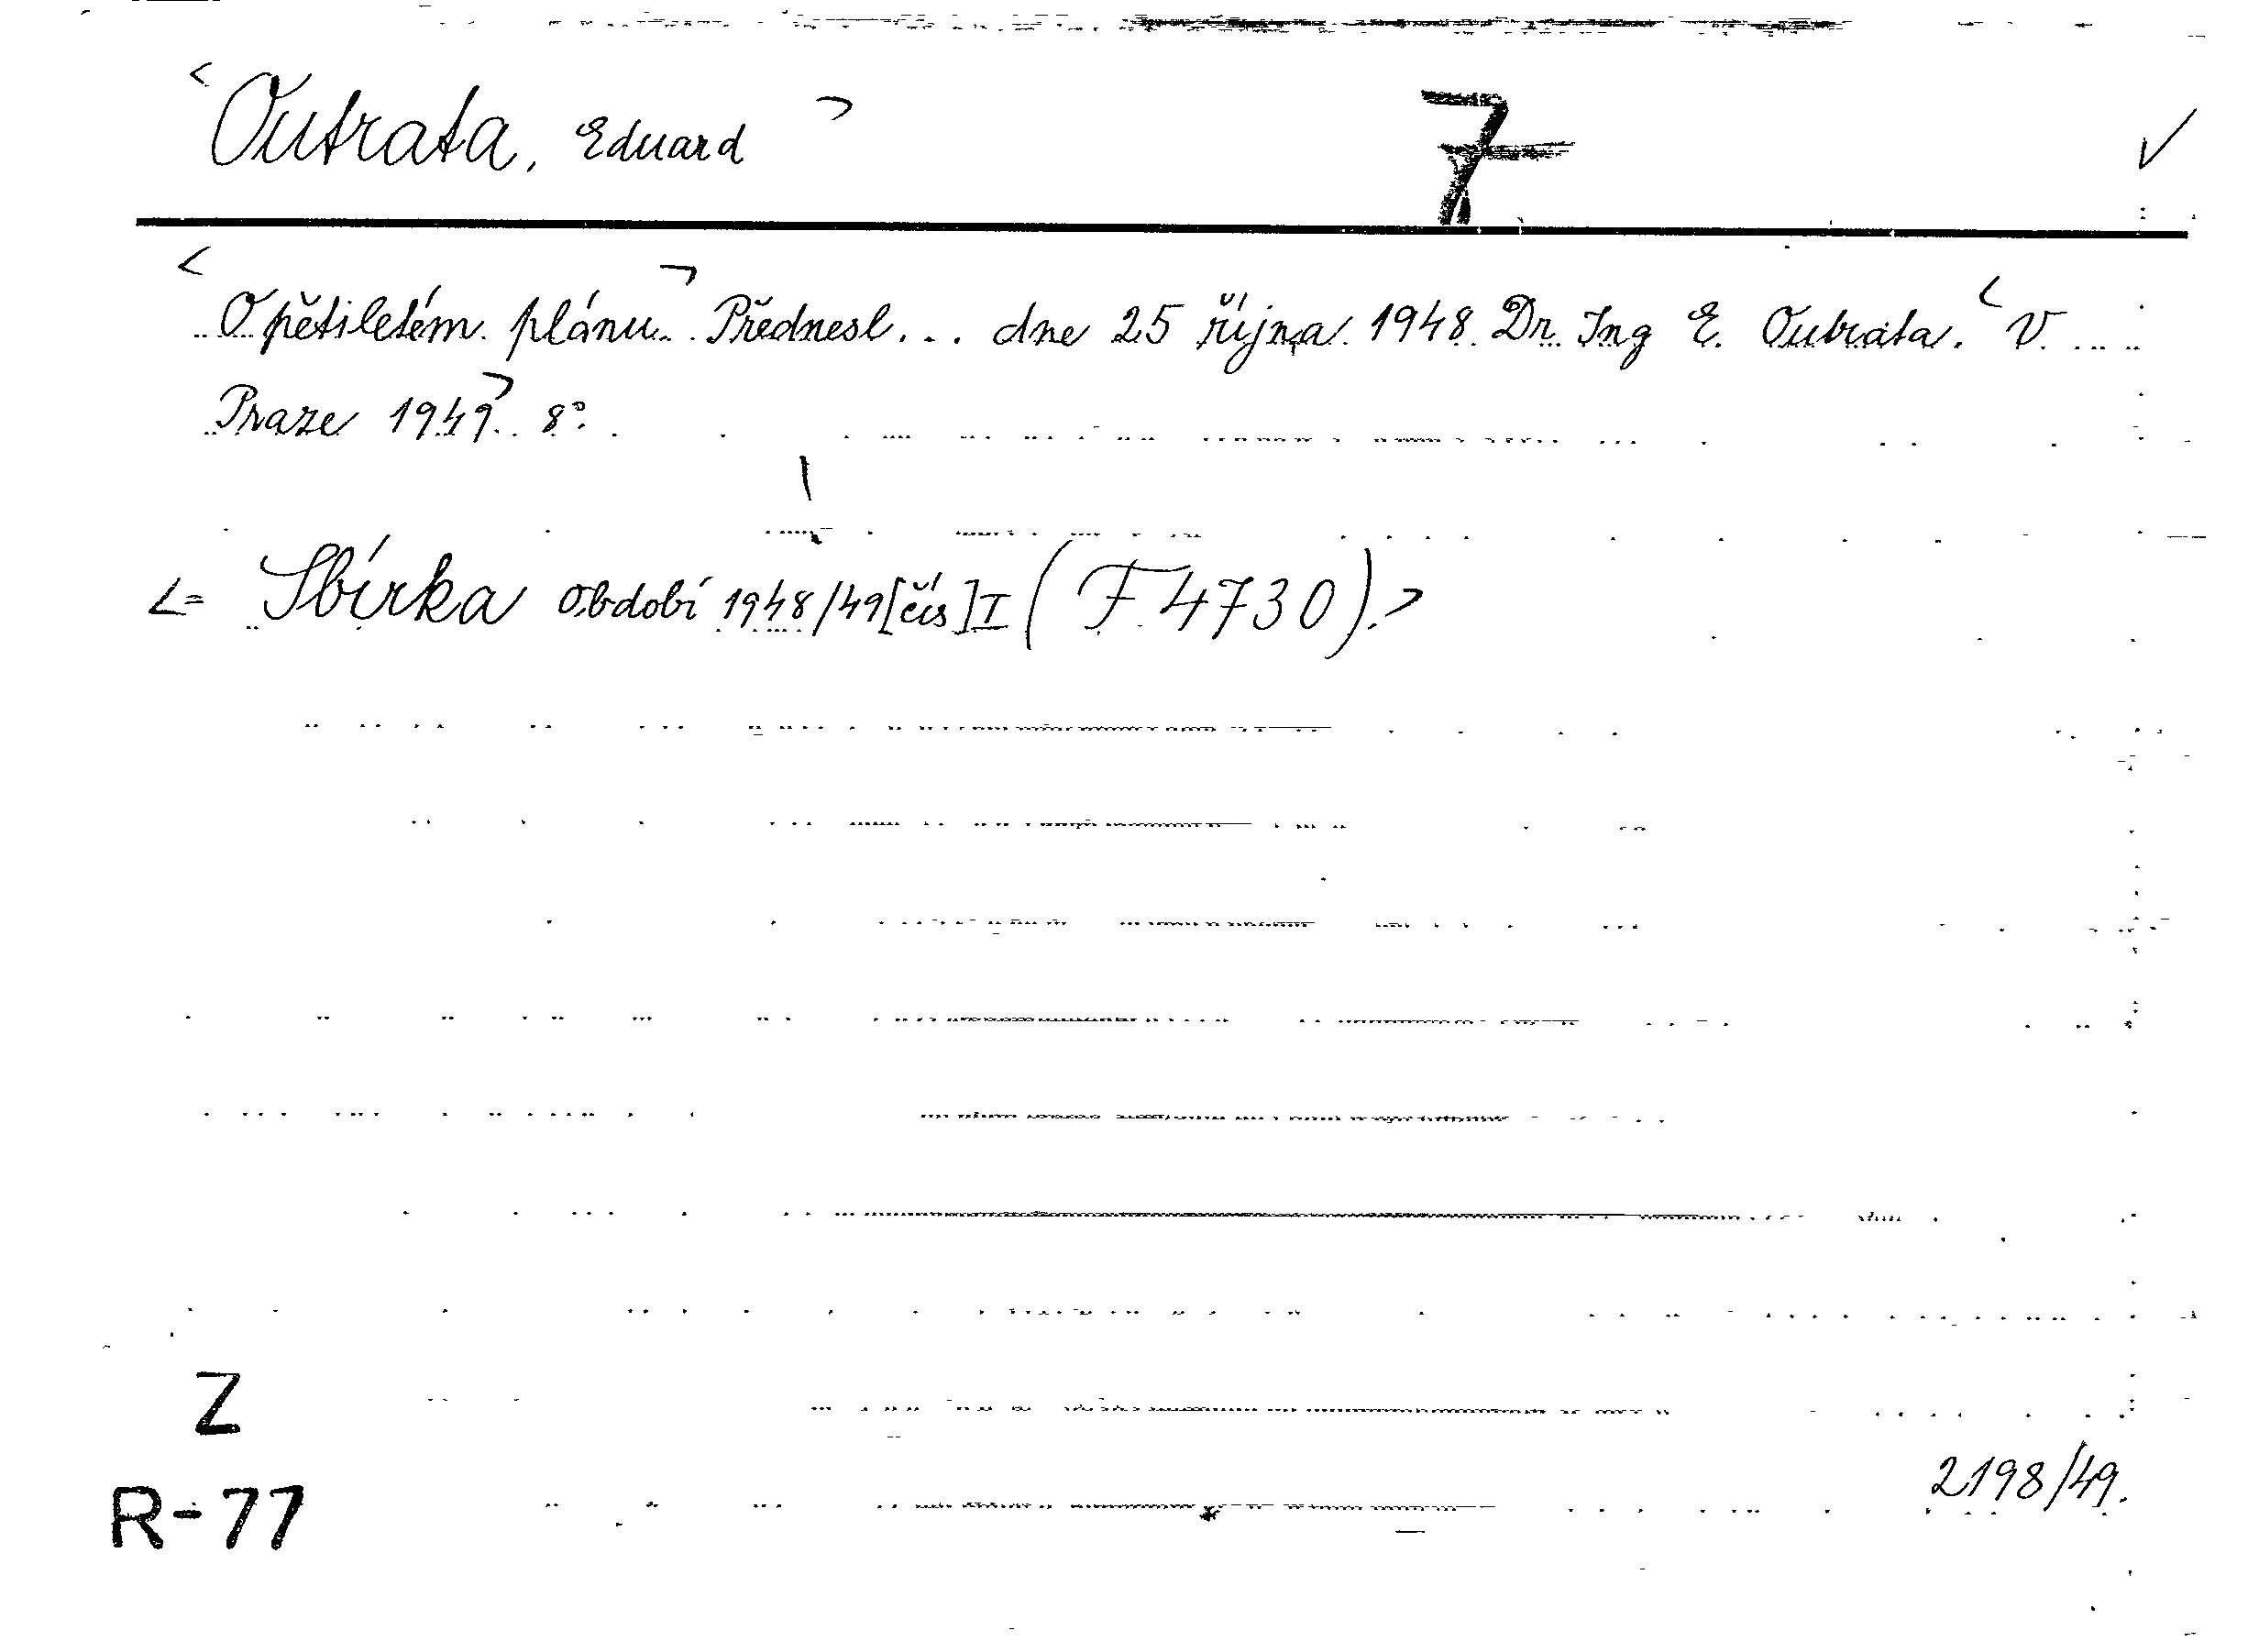 <Outrata, Eduard> 7 ✓
<O pětiletém plánu.> Přednesl... dne 25 října 1948 Dr. Ing E. Outrata. <V
Praze 1949> 8°.
<= Sbírka období 1948/49[čís]I (F 4730).>
Z
2198/49.
R-77